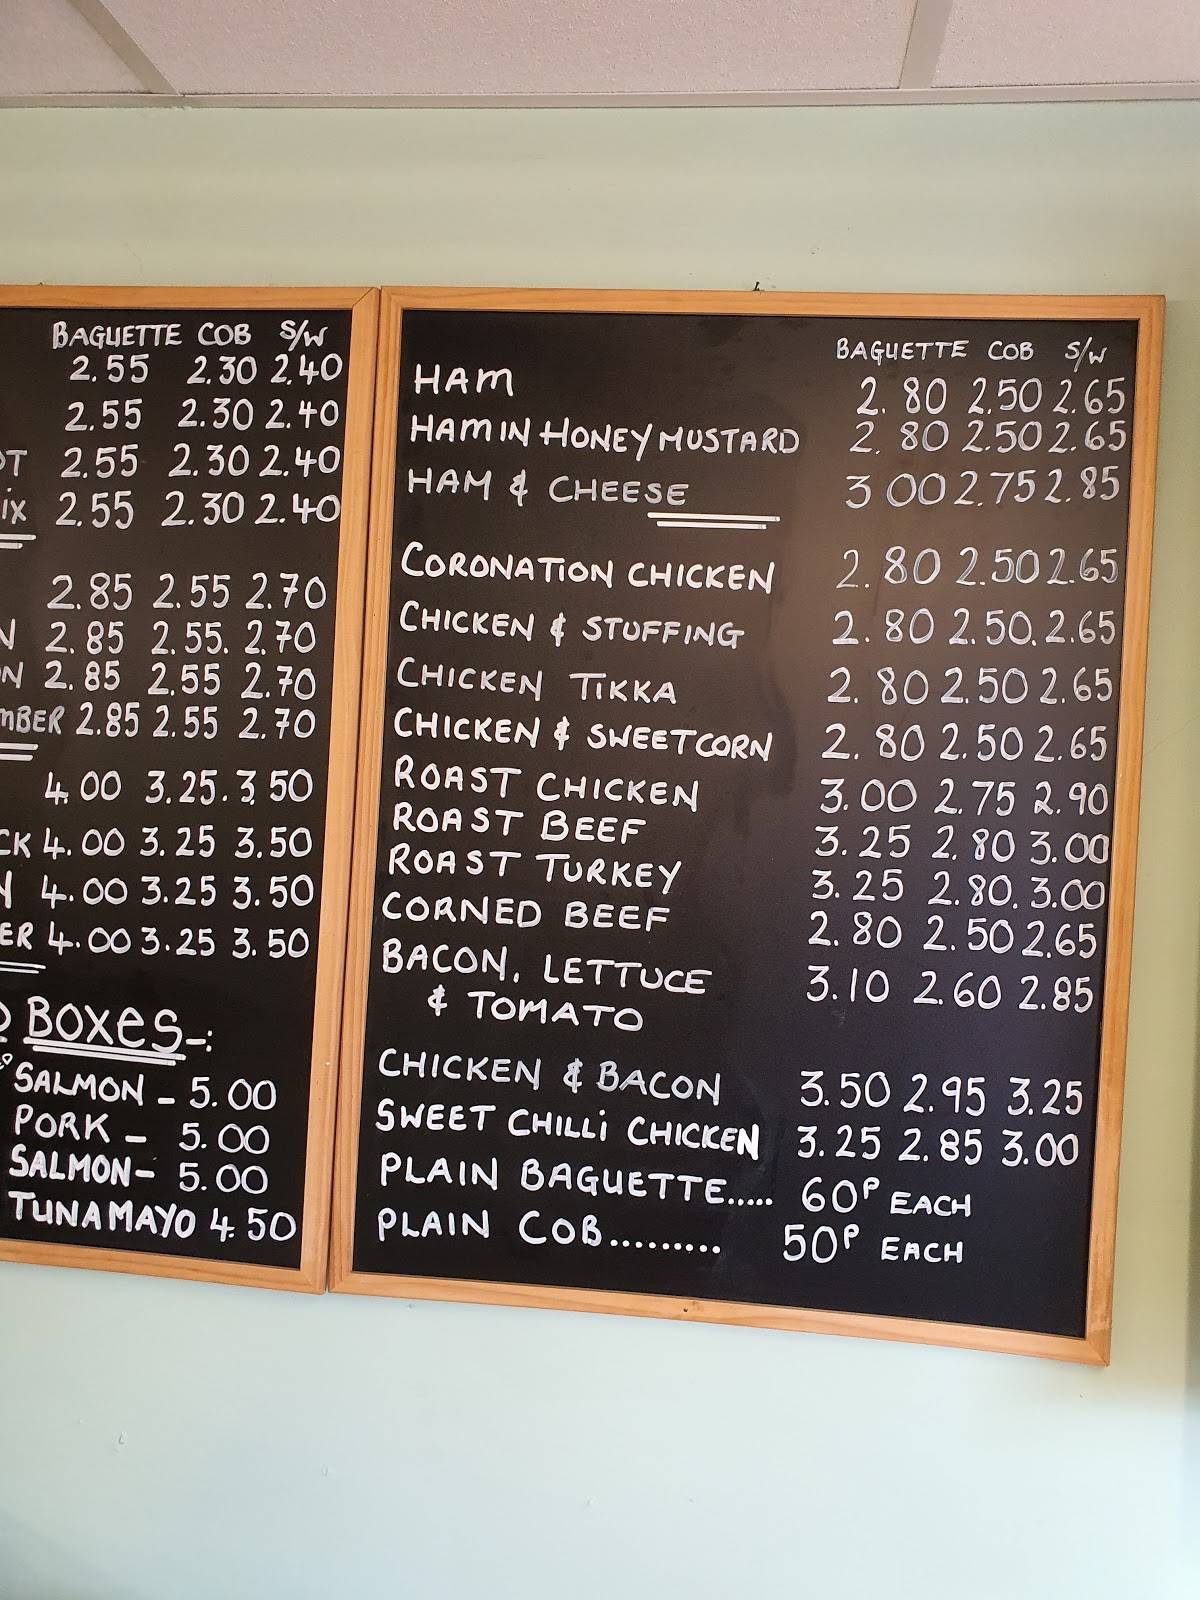 BAGUETTE COB S/W
2.55 2.30 2.40
2.55 2.30 2.40
2.55 2.30 2.40
2.55 2.30 2.40
2.85 2.55 2.70
2.85 2.55. 2.70
2.85 2.55 2.70
MBER 2.85 2.55 2.70
4.00 3.25. 3.50
CK 4.00 3.25 3.50
4.00 3.25 3.50
ER 4.00 3.25 3.50
BOXES-:
SALMON - 5.00
PORK - 5.00
SALMON- 5.00
TUNA MAYO 4.50
BAGUETTE COB S/W
HAM 2.80 2.50 2.65
HAM IN HONEY MUSTARD 2.80 2.50 2.65
HAM & CHEESE 3 00 2.75 2.85
CORONATION CHICKEN 2.80 2.50 2.65
CHICKEN & STUFFING 2.80 2.50. 2.65
CHICKEN TIKKA 2.80 2.50 2.65
CHICKEN & SWEETCORN 2.80 2.50 2.65
ROAST CHICKEN 3.00 2.75 2.90
ROAST BEEF 3.25 2.80 3.00
ROAST TURKEY 3.25 2.80. 3.00
CORNED BEEF 2.80 2.50 2.65
BACON, LETTUCE 3.10 2.60 2.85
& TOMATO
CHICKEN & BACON 3.50 2.95 3.25
SWEET CHILLi CHICKEN 3.25 2.85 3.00
PLAIN BAGUETTE..... 60P EACH
PLAIN COB......... 50P EACH